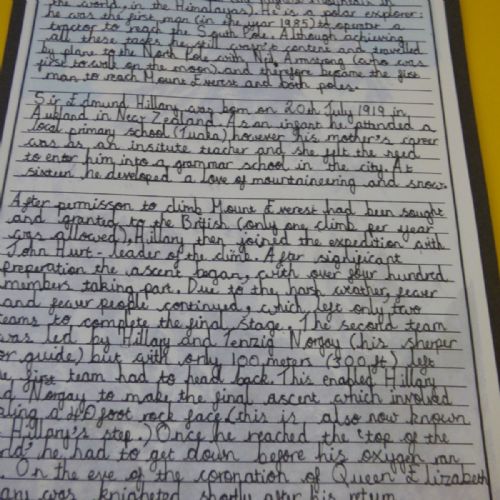 the world, in the Himalayas). He is a polar explorer:
he was the first man (in the year 1985) to operate
to reach the South Pole. Although achieving
all these tasks he still wasn't content and travelled
by plane to the North Pole with Neil Armstrong (who was
first to walk on the moon) and therefore became the first
man to reach Mount Everest and both poles.
Sir Edmund Hillary was born on 20th July 1919 in
Aukland in New Zealand. As an infant he attended a
local primary school (Tuaka) however his mother's career
was as an insitute teacher and she felt the need
to enter him into a grammar school in the city. At
sixteen he developed a love of mountnineering and snow.
After permisson to climb Mount Everest had been sought
and granted to the British (only one climb per year
was allowed), Hillary then joined the expedition with
John Hurt - leader of the climb. After significant
preperation the ascent began, with over four hundred
members taking part. Due to the harsh weather, fewer
and fewer people continued, which left only two
teams to complete the final stage. The second team
was led by Hillary and Tenzig Norgay (his sherper
or guide) but with only 100 meters (300 ft) left
the first team had to head back. This enabled Hillary
Norgay to make the final ascent which involved
a 40 foot rock face. (this is also now known
Hillary's step.) Once he reached the 'top of the
he had to get down before his oxygen ran
On the eve of the coronation of Queen Elizabeth
was knighted shortly after his return